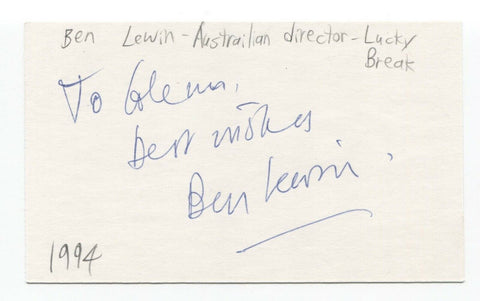 Ben Lewin - Austrailian director - Lucky
Break
To Glenn,
best wishes
Ben Lewin.
1994